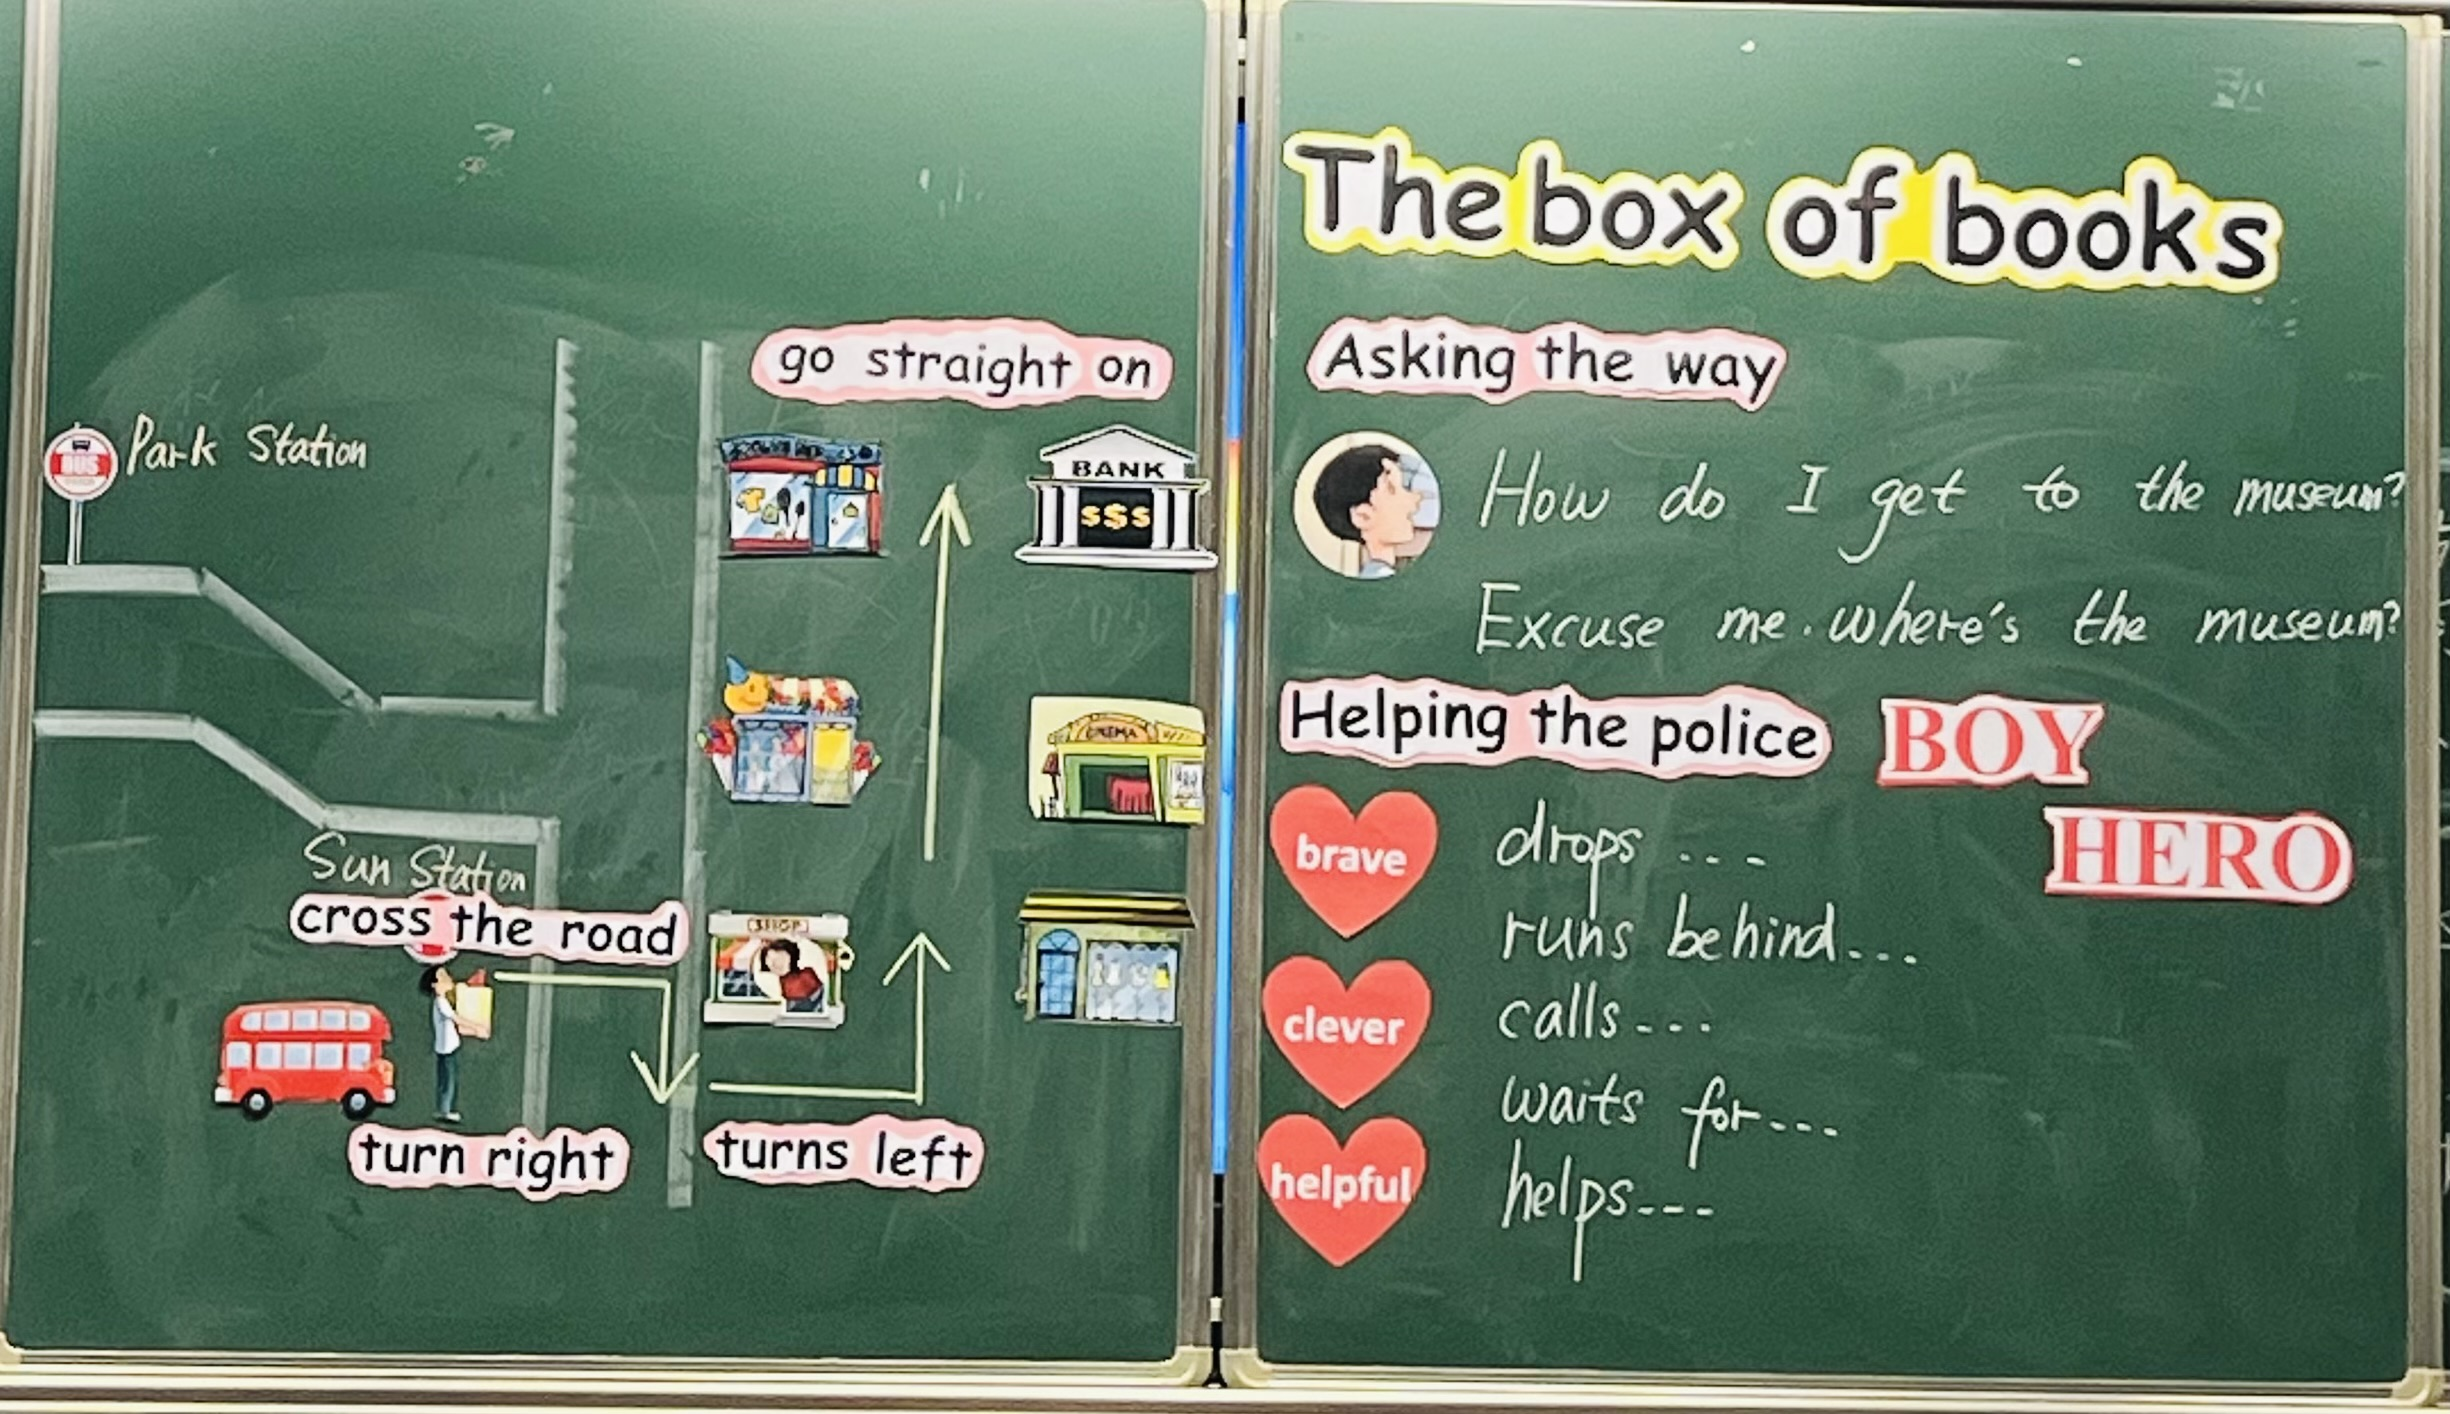 go straight on
BUS
Park Station
BANK
$$$
CINEMA
Sun Station
cross the road
SHOP
turn right
turns left
The box of books
Asking the way
How do I get to the museum?
Excuse me. where's the museum?
Helping the police
BOY
HERO
brave
drops ...
runs behind...
clever
calls...
waits for...
helpful
helps---